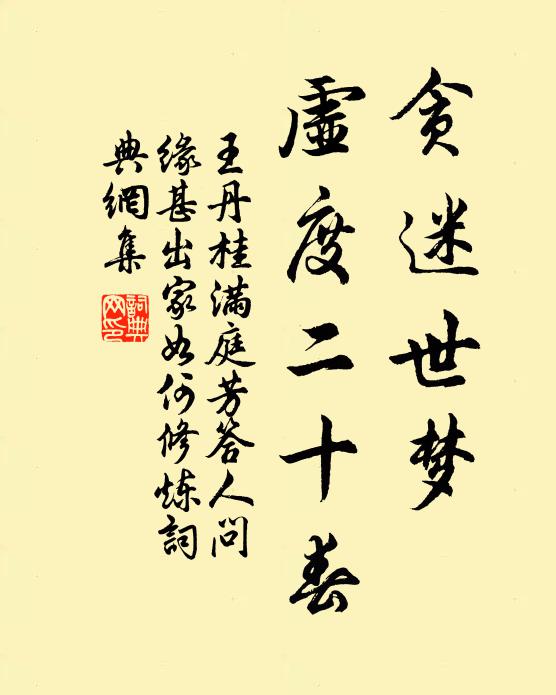 贪迷世梦
虚度二十春
王丹桂满庭芳答人问
缘甚出家如何修炼詞
典網集
詞典
网印